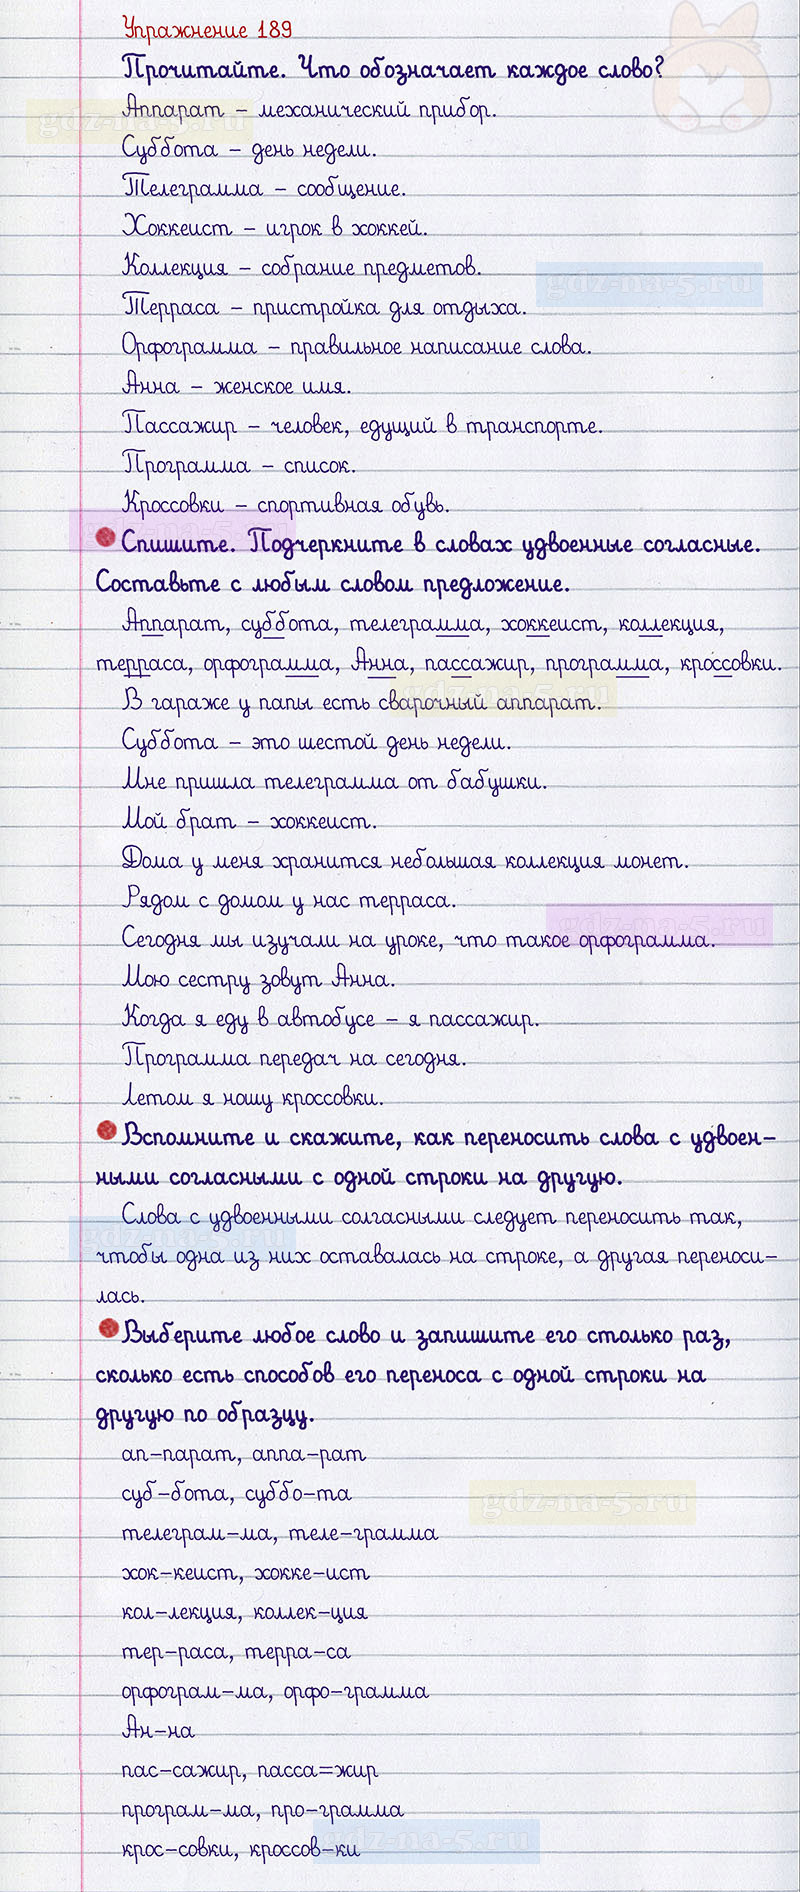 Упражнение 189
Прочитайте. Что обозначает каждое слово?
Аппарат – механический прибор.
gdz-na-5.ru
Суббота – день недели.
Телеграмма – сообщение.
Хоккеист – игрок в хоккей.
Коллекция – собрание предметов.
gdz-na-5.ru
Терраса – пристройка для отдыха.
Орфограмма – правильное написание слова.
Анна – женское имя.
Пассажир – человек, едущий в транспорте.
Программа – список.
Кроссовки – спортивная обувь.
gdz-na-5.ru
Спишите. Подчеркните в словах удвоенные согласные.
Составьте с любым словом предложение.
Аппарат, суббота, телеграмма, хоккеист, коллекция,
терраса, орфограмма, Анна, пассажир, программа, кроссовки.
gdz-na-5.ru
В гараже у папы есть сварочный аппарат.
Суббота – это шестой день недели.
Мне пришла телеграмма от бабушки.
Мой брат – хоккеист.
Дома у меня хранится небольшая коллекция монет.
Рядом с домом у нас терраса.
gdz-na-5.ru
Сегодня мы изучали на уроке, что такое орфограмма.
Мою сестру зовут Анна.
Когда я еду в автобусе – я пассажир.
Программа передач на сегодня.
Летом я ношу кроссовки.
Вспомните и скажите, как переносить слова с удвоен-
ными согласными с одной строки на другую.
Слова с удвоенными солгасными следует переносить так,
gdz-na-5.ru
чтобы одна из них оставалась на строке, а другая переноси-
лась.
Выберите любое слово и запишите его столько раз,
сколько есть способов его переноса с одной строки на
другую по образцу.
ап-парат, аппа-рат
суб-бота, суббо-та
gdz-na-5.ru
телеграм-ма, теле-грамма
хок-кеист, хокке-ист
кол-лекция, коллек-ция
тер-раса, терра-са
орфограм-ма, орфо-грамма
Ан-на
пас-сажир, пасса=жир
програм-ма, про-грамма
gdz-na-5.ru
крос-совки, кроссов-ки